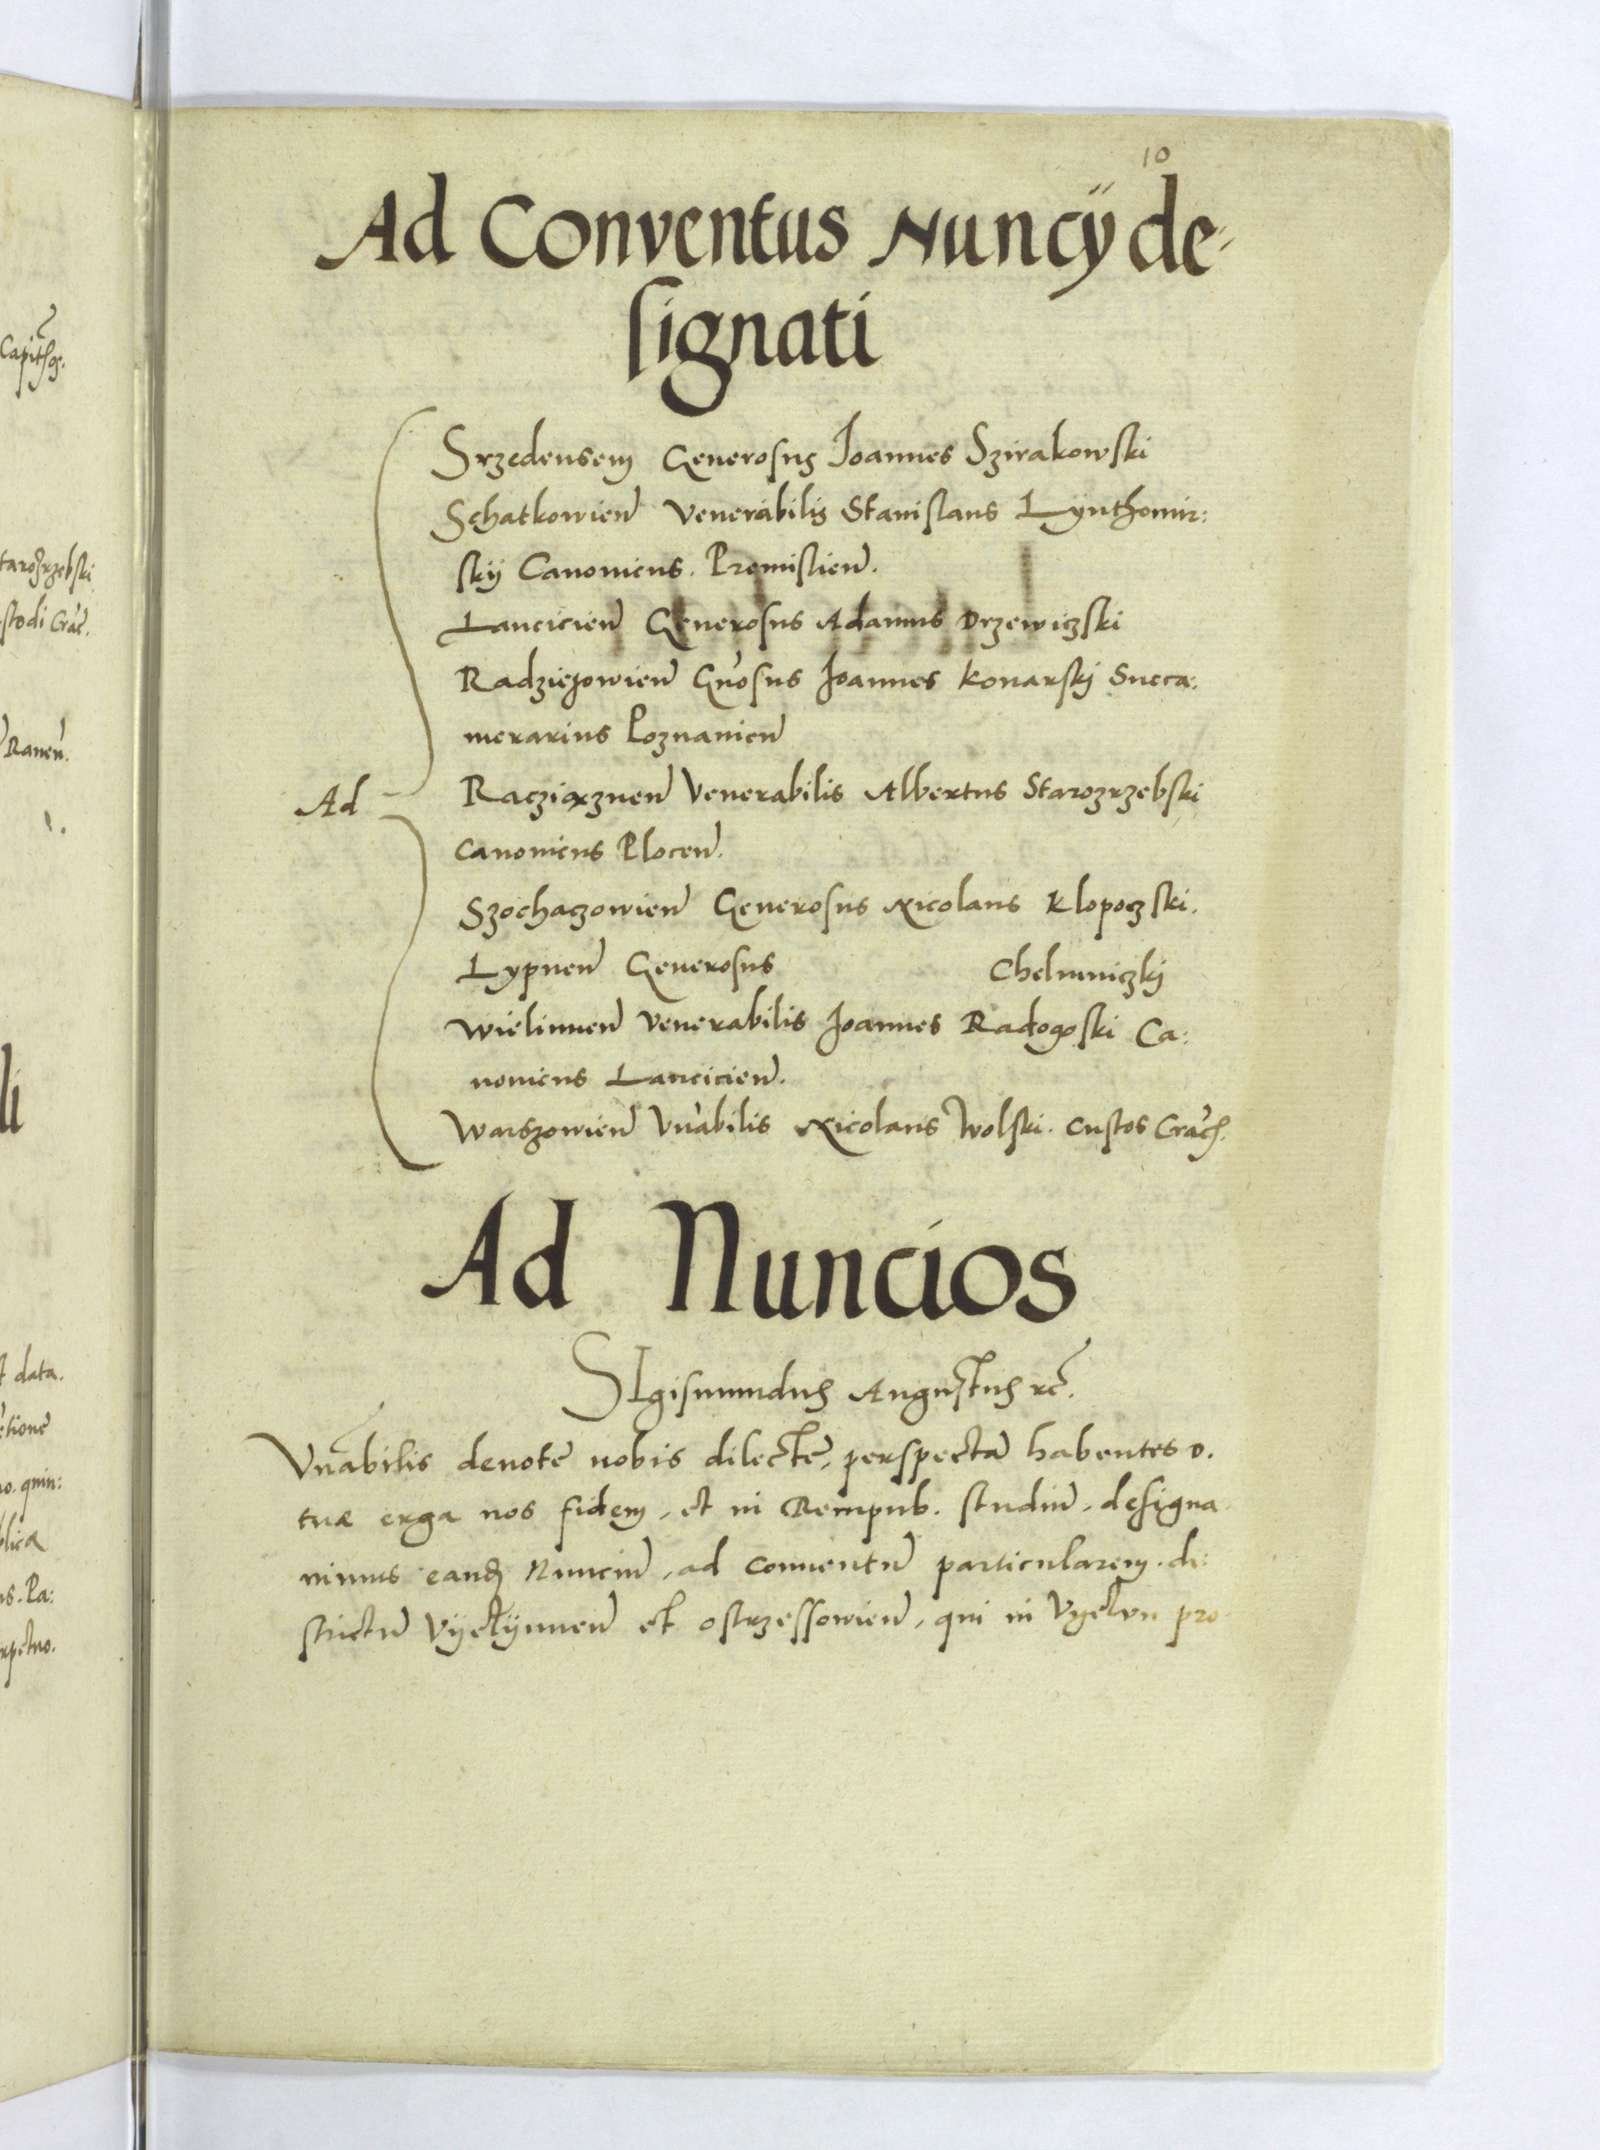 10
Ad Conventus Nuncÿ de-
signati
Srzedensem Generosus Joannes Szirakowski
Schatkowien̄ Venerabilis Stanislaus Lynthomir:
skÿ Canonicus. Premislien̄.
Lancicien̄ Generosus Adamus Drzewiczski
Radziejowien̄ Gn̄osus Joannes Konarskj Succa:
merarius Poznanien̄
Ad Raczią̨znen̄ Venerabilis Albertus Starozrzebski
Canonicus Plocen̄.
Szochaczowien̄ Generosus Nicolaus Klopoczski.
Lypnen̄ Generosus Chelmniczkj
Wielunnen̄ Venerabilis Joannes Radogoski Ca:
nonicus Lancicien̄.
Warszowien̄ Vn̄abilis Nicolaus Wolski. Custos Crac̄.
Ad Nuncios
SIgismundus Augustus rc̄.
Vn̄abilis devote nobis dilecte, perspectā habentes D.
tuæ erga nos fidem, et in Rempub. studiū, designa
uimus eandē Nunciū, ad Conuentū particularem. di:
strictū Vÿelÿunen̄ et Ostrzessowien̄, qui in Vyelun pro
Capit̄
tarozrzebski
stodi Crac̄.
Raven̄.
li
data.
ctione
no. quin:
blica
us. Pa:
rpetuo.